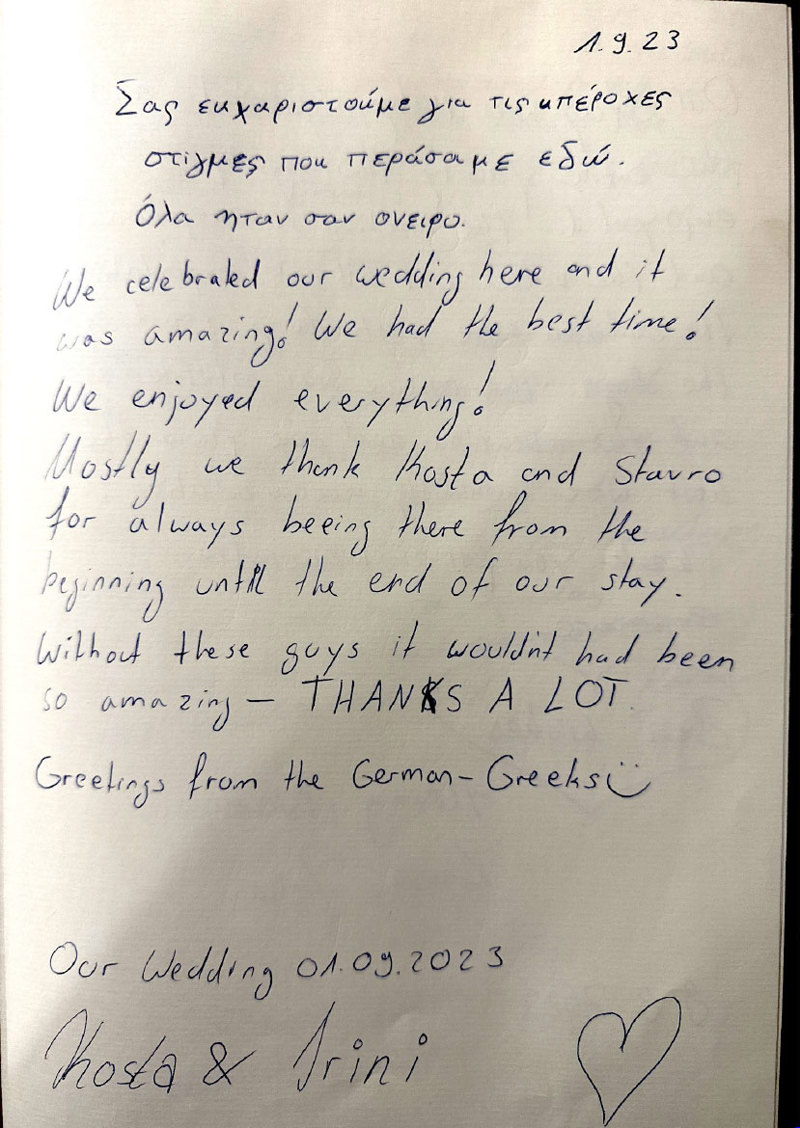 1.9.23
Σας ευχαριστούμε για τις υπέροχες
στιγμες που περάσαμε εδώ.
Όλα ηταν σαν ονειρο.
We celebrated our wedding here and it
was amazing! We had the best time!
We enjoyed everything!
Mostly we thank Kosta and Stavro
for always beeing there from the
beginning until the end of our stay.
Without these guys it wouldn't had been
so amazing – THANKS A LOT.
Greetings from the German-Greeks :)
Our Wedding 01.09.2023
Kosta & Irini